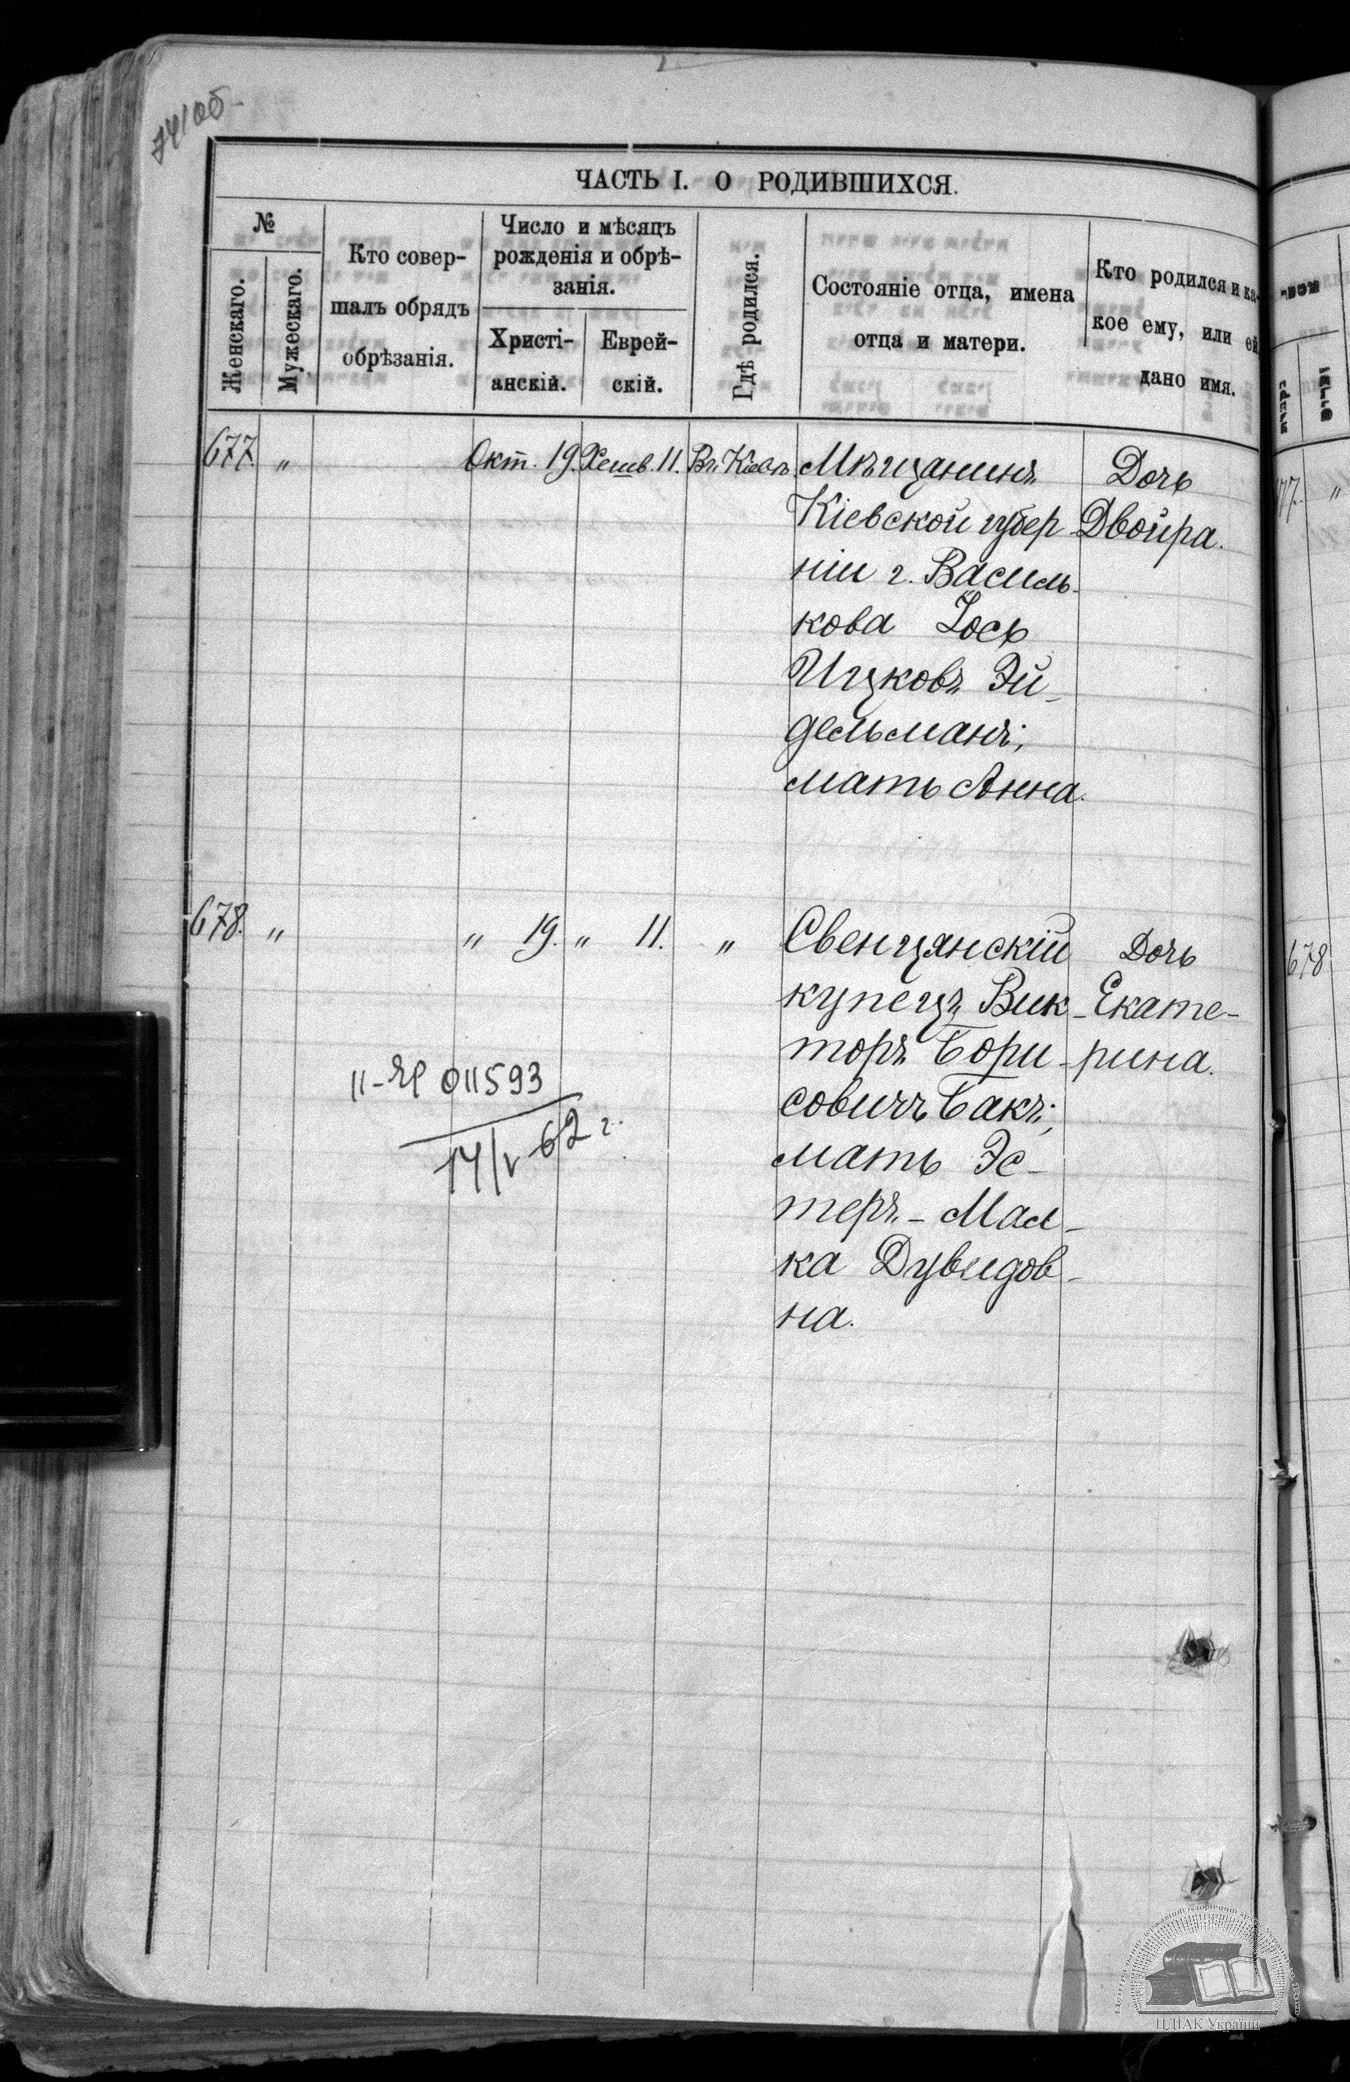 741об
ЧАСТЬ I. О РОДИВШИХСЯ.
№
Женскаго.
Мужескаго.
Кто совер-
шалъ обрядъ
обрѣзанія.
Число и мѣсяцъ
рожденія и обрѣ-
занія.
Христі-
анскій.
Еврей-
скій.
Гдѣ родился.
Состояніе отца, имена
отца и матери.
Кто родился и ка-
кое ему, или ей
дано имя.
677. „ Окт. 19. Хешв. 11. Въ Кіевѣ. Мѣщанинъ Дочь
Кіевской губер- Двойра.
ніи г. Василь-
кова Іось
Ицковъ Эй-
дельманъ;
мать Анна.
678. „ „ 19. „ 11. „ Свенцянскій Дочь
купецъ Вик- Екате-
торъ Бори- рина.
совичъ Бакъ;
мать Эс-
теръ-Мал-
ка Дувидов-
на.
II-ЯР 011593
14/V 62 г.
77. „
678
ЦДІАК України